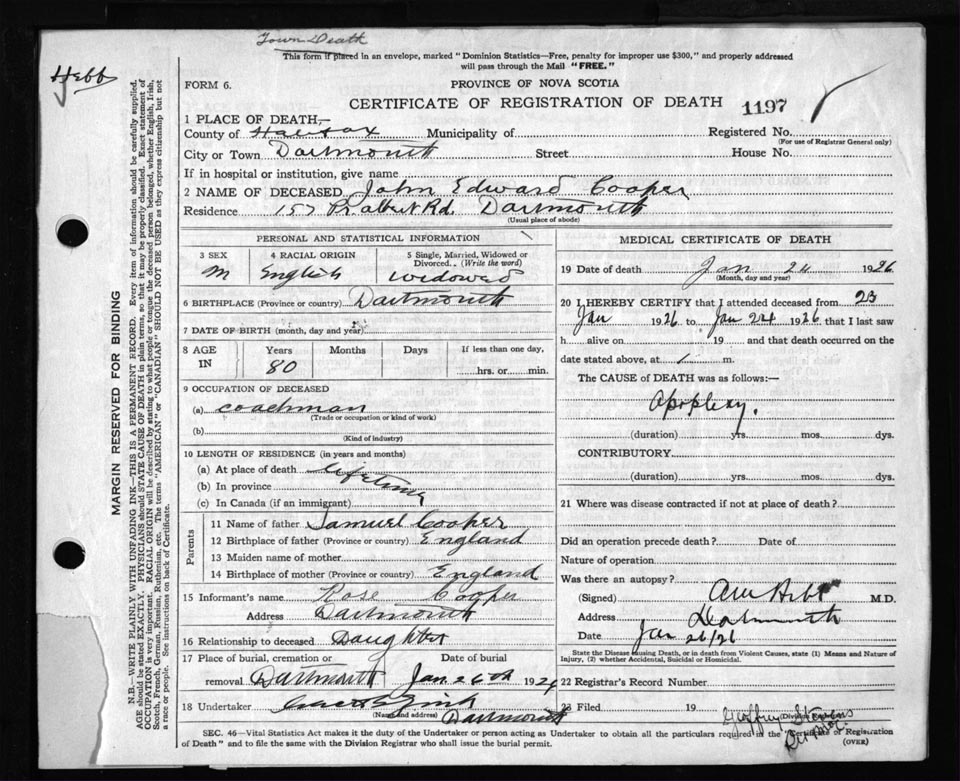 Town Death
This form if placed in an envelope, marked "Dominion Statistics—Free, penalty for improper use $300," and properly addressed
will pass through the Mail "FREE."
Hebb
FORM 6.
PROVINCE OF NOVA SCOTIA
CERTIFICATE OF REGISTRATION OF DEATH 1197
1 PLACE OF DEATH,—
County of Halifax Municipality of Registered No.
(For use of Registrar General only)
City or Town Dartmouth Street House No.
If in hospital or institution, give name
2 NAME OF DECEASED John Edward Cooper
Residence 157 Pr albert Rd. Dartmouth
(Usual place of abode)
PERSONAL AND STATISTICAL INFORMATION
3 SEX 4 RACIAL ORIGIN 5 Single, Married, Widowed or
Divorced.. (Write the word)
M English widowed
6 BIRTHPLACE (Province or country) Dartmouth
7 DATE OF BIRTH (month, day and year)
8 AGE IN Years Months Days If less than one day,
80 hrs. or min.
9 OCCUPATION OF DECEASED
(a) coachman
(Trade or occupation or kind of work)
(b)
(Kind of industry)
10 LENGTH OF RESIDENCE (in years and months)
(a) At place of death lifetime
(b) In province
(c) In Canada (if an immigrant)
Parents
11 Name of father Samuel Cooper
12 Birthplace of father (Province or country) England
13 Maiden name of mother
14 Birthplace of mother (Province or country) England
15 Informant's name Rose Cooper
Address Dartmouth
16 Relationship to deceased Daughter
17 Place of burial, cremation or Date of burial
removal Dartmouth Jan 26th 1926
18 Undertaker
(Name and address) Dartmouth
MEDICAL CERTIFICATE OF DEATH
19 Date of death Jan 24 1926
(Month, day and year)
20 I HEREBY CERTIFY that I attended deceased from 23
Jan 1926 to Jan 24 1926 that I last saw
h alive on 19 and that death occurred on the
date stated above, at 1 m.
The CAUSE OF DEATH was as follows:—
Apoplexy.
(duration) yrs. mos. dys.
CONTRIBUTORY
(duration) yrs. mos. dys.
21 Where was disease contracted if not at place of death?
Did an operation precede death? Date of
Nature of operation
Was there an autopsy?
(Signed) M.D.
Address Dartmouth
Date Jan 26/26
State the Disease causing Death, or in death from Violent Causes, state (1) Means and Nature of
Injury, (2) whether Accidental, Suicidal or Homicidal.
22 Registrar's Record Number
23 Filed 19 Geoffrey Stevens
(Division Registrar)
SEC. 46—Vital Statistics Act makes it the duty of the Undertaker or person acting as Undertaker to obtain all the particulars required in the "Certificate of Registration
of Death" and to file the same with the Division Registrar who shall issue the burial permit.
(OVER)
MARGIN RESERVED FOR BINDING
N.B.—WRITE PLAINLY WITH UNFADING INK—THIS IS A PERMANENT RECORD. Every item of information should be carefully supplied.
AGE should be stated EXACTLY. PHYSICIANS should STATE CAUSE OF DEATH in plain terms, so that it may be properly classified. Exact statement of
OCCUPATION is very important. RACIAL ORIGIN will be described by stating to what people or tongue the deceased person belonged, whether English, Irish,
Scotch, French, German, Russian, Ruthenian, etc. The terms "AMERICAN" or "CANADIAN" SHOULD NOT BE USED as they express citizenship but not
a race or people. See instructions on back of Certificate.